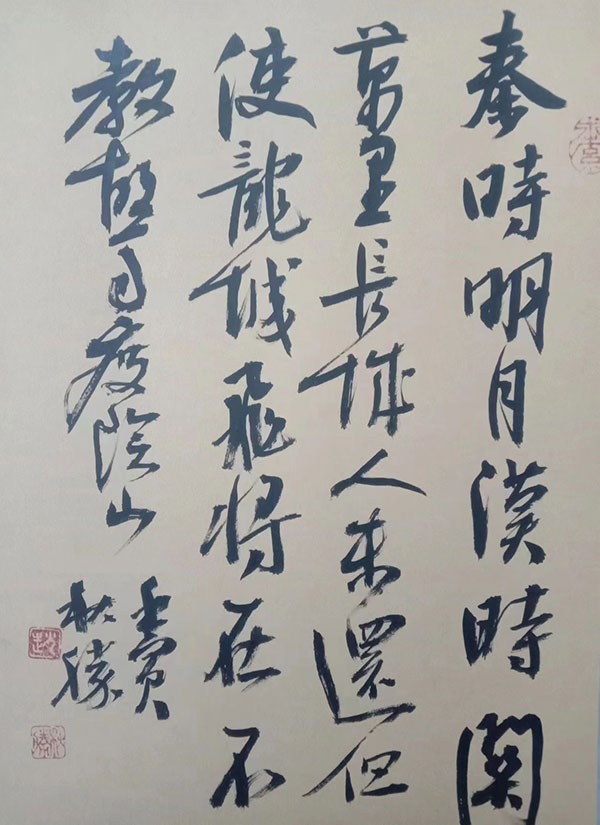 秦時明月漢時關
萬里長城人未還但
使龍城飛將在不
教胡馬度陰山
壬寅
秋勝